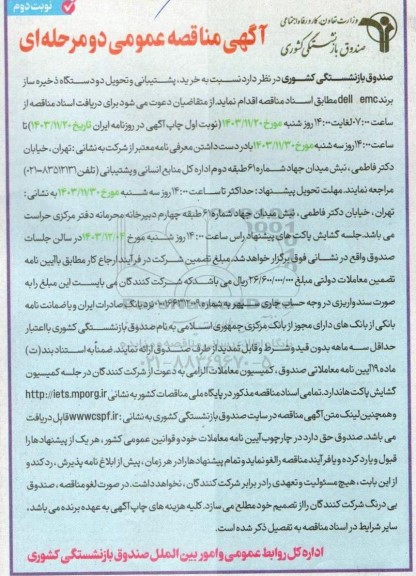 نوبت دوم
وزارت تعاون، کار و رفاه اجتماعی
صندوق بازنشستگی کشوری
آگهی مناقصه عمومی دو مرحله ای
صندوق بازنشستگی کشوری در نظر دارد نسبت به خرید، پشتیبانی و تحویل دو دستگاه ذخیره ساز
برند dell emc مطابق اسناد مناقصه اقدام نماید. از متقاضیان دعوت می شود برای دریافت اسناد مناقصه از
ساعت ۰۷:۰۰ لغایت ۱۴:۰۰ روز شنبه مورخ ۱۴۰۳/۱۱/۲۰ (نوبت اول چاپ آگهی در روزنامه ایران تاریخ ۱۴۰۳/۱۱/۲۰) تا
ساعت ۱۴:۰۰ روز سه شنبه مورخ ۱۴۰۳/۱۱/۳۰ با در دست داشتن معرفی نامه معتبر از شرکت به نشانی: تهران، خیابان
دکتر فاطمی، نبش میدان جهاد شماره ۶۱ طبقه دوم اداره کل منابع انسانی و پشتیبانی (تلفن ۸۳۵۱۳۱۳۱-۰۲۱)
مراجعه نمایند. مهلت تحویل پیشنهاد: حداکثر تا ساعت ۱۴:۰۰ روز سه شنبه مورخ ۱۴۰۳/۱۱/۳۰ به نشانی:
تهران، خیابان دکتر فاطمی، نبش میدان جهاد شماره ۶۱ طبقه چهارم دبیرخانه محرمانه دفتر مرکزی حراست
می باشد. جلسه گشایش پاکت های پیشنهاد راس ساعت ۱۴:۰۰ روز شنبه مورخ ۱۴۰۳/۱۲/۰۴ در سالن جلسات
صندوق واقع در نشانی فوق برگزار خواهد شد. مبلغ تضمین شرکت در فرآیند ارجاع کار مطابق با آیین نامه
تضمین معاملات دولتی مبلغ ۳۶/۶۰۰/۰۰۰/۰۰۰ ریال می باشد که شرکت کنندگان می بایست این مبلغ را به
صورت سند واریزی در وجه حساب جاری سپهر به شماره نزد بانک صادرات ایران و یا ضمانت نامه
بانکی از بانک های دارای مجوز از بانک مرکزی جمهوری اسلامی به نام صندوق بازنشستگی کشوری با اعتبار
حداقل سه ماهه بدون قید و شرط و قابل تمدید از طرف صندوق ارائه نمایند. ضمناً به استناد بند (ت)
ماده ۱۹ آیین نامه معاملاتی صندوق، کمیسیون معاملات الزامی به دعوت از شرکت کنندگان در جلسه کمیسیون
گشایش پاکت ها ندارد. تمامی اسناد مناقصه مذکور در پایگاه ملی مناقصات کشور به نشانی http://iets.mporg.ir
و همچنین لینک متن آگهی مناقصه در سایت صندوق بازنشستگی کشوری به نشانی: www.cspf.ir قابل دریافت
می باشد. صندوق حق دارد در چارچوب آیین نامه معاملات خود و قوانین عمومی کشور، هر یک از پیشنهادها را
قبول و یا رد کرده و یا فرآیند مناقصه را لغو نماید و تمام پیشنهادها را در هر زمان، پیش از ابلاغ نامه پذیرش، رد کند و
از این بابت، هیچ مسئولیت و تعهدی را در برابر شرکت کنندگان، نخواهد داشت. در صورت لغو مناقصه، صندوق
بی درنگ شرکت کنندگان را از تصمیم خود مطلع می سازد. کلیه هزینه های چاپ آگهی به عهده برنده می باشد،
سایر شرایط در اسناد مناقصه به تفصیل ذکر شده است.
اداره کل روابط عمومی و امور بین الملل صندوق بازنشستگی کشوری